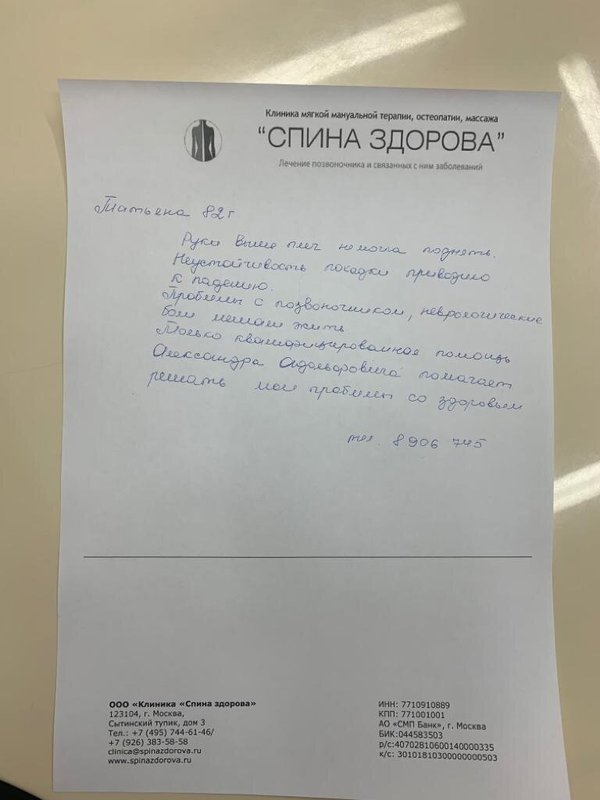 Клиника мягкой мануальной терапии, остеопатии, массажа
"СПИНА ЗДОРОВА"
Лечение позвоночника и связанных с ним заболеваний
Татьяна 82 г
Руки выше плеч не могла поднять.
Неустойчивость походки приводило
к падению.
Проблемы с позвоночником, неврологические
боли мешают жить
Только квалифицированная помощь
Александра Адольфовича помогает
решать мои проблемы со здоровьем
тел. 8 906 745
ООО «Клиника «Спина здорова»
123104, г. Москва,
Сытинский тупик, дом 3
Тел.: +7 (495) 744-61-46/
+7 (926) 383-58-58
clinica@spinazdorova.ru
www.spinazdorova.ru
ИНН: 7710910889
КПП: 771001001
АО «СМП Банк», г. Москва
БИК:044583503
р/с:40702810600140000335
к/с: 30101810300000000503